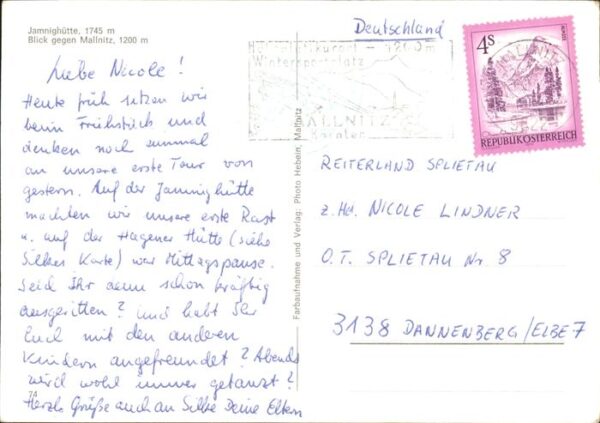 Jamnighütte, 1745 m
Blick gegen Mallnitz, 1200 m
Liebe Nicole!
Heute früh setzen wir
beim Frühstück und
denken noch einmal
an unsere erste Tour von
gestern. Auf der Jamnighütte
machten wir unsere erste Rast
u. auf der Hagener Hütte (siehe
Silkes Karte) war Mittagspause.
Seid Ihr denn schon kräftig
ausgeritten? Und habt Ihr
Euch mit den anderen
Kindern angefreundet? Abends
wird wohl immer getanzt?
Herzl. Grüße auch an Silke Deine Eltern
74
Farbaufnahme und Verlag: Photo Hebein, Mallnitz
Deutschland
1200 m
Wintersportplatz
MALLNITZ
Kärnten
4s
REPUBLIK ÖSTERREICH
REITERLAND SPLIETAU
z. Hd. NICOLE LINDNER
O.T. SPLIETAU Nr. 8
3138 DANNENBERG/ELBE 7